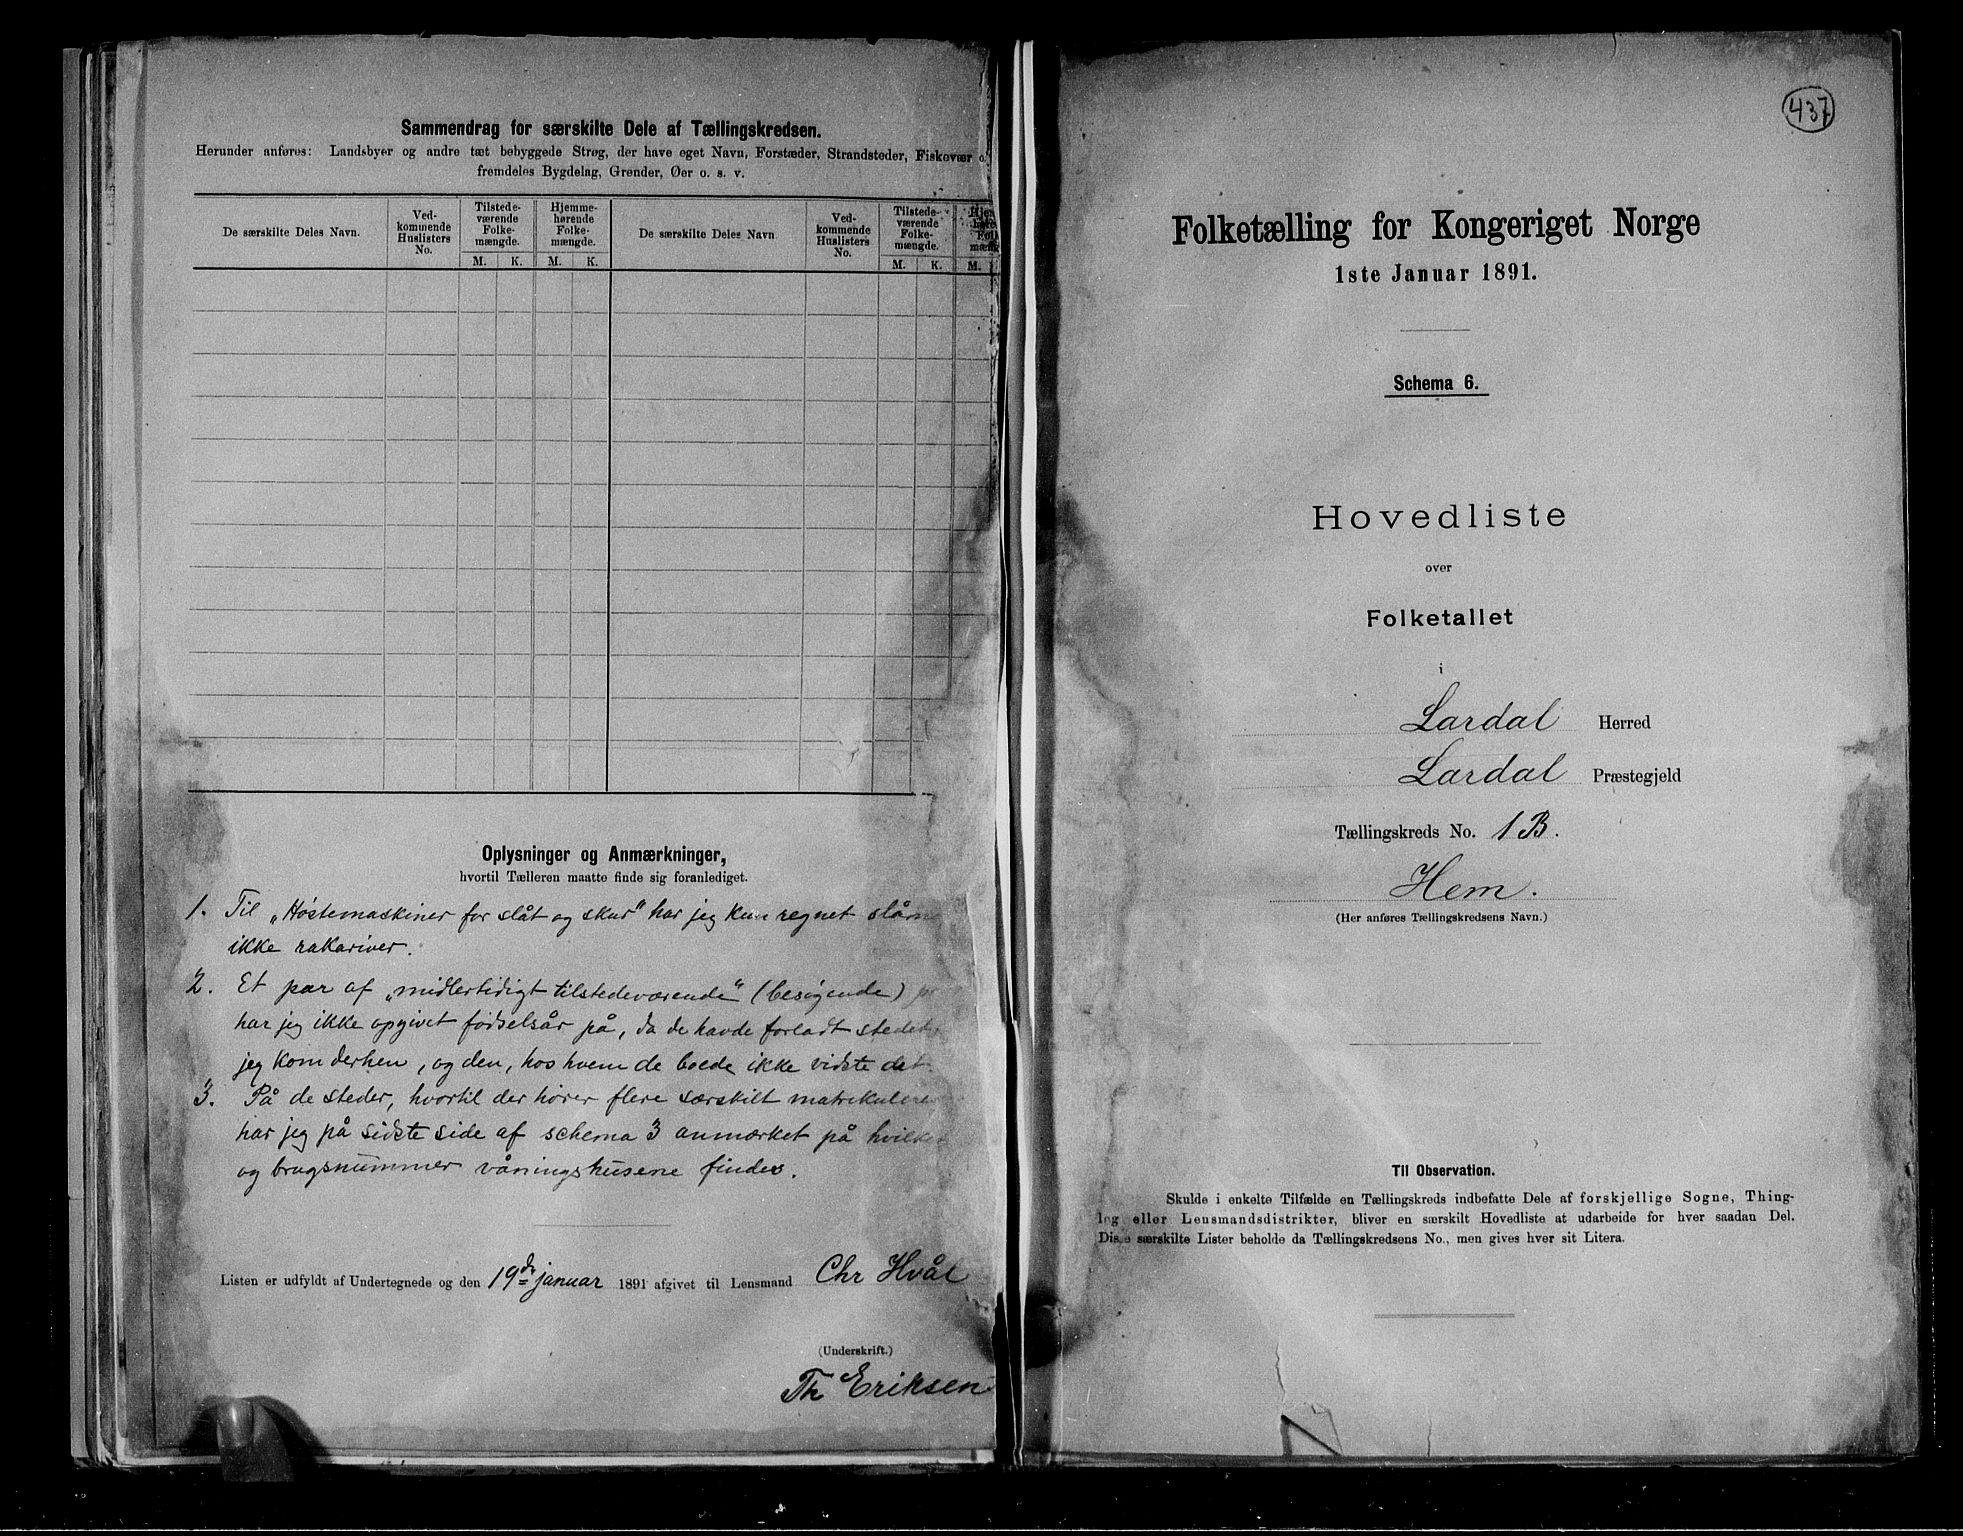 Sammendrag for særskilte Dele af Tællingskredsen.
Herunder anføres: Landsbyer og andre tæt bebyggede Strøg, der have eget Navn, Forstæder, Strandsteder, Fiskevær o.
fremdeles Bygdelag, Grender, Øer o. s. v.
De særskilte Deles Navn.
Ved-
kommende
Huslisters
No.
Tilstede-
værende
Folke-
mængde.
Hjemme-
hørende
Folke-
mængde.
De særskilte Deles Navn.
Ved-
kommende
Huslisters
No.
Tilstede-
værende
Folke-
mængde.
M. K. M. K. M. K. M.
Oplysninger og Anmærkninger,
hvortil Tælleren maatte finde sig foranlediget.
1. Til „Høstemaskiner for slåt og skur" har jeg kun regnet
ikke rakariver.
2. Et par af „midlertidigt tilstedeværende" (besøgende)
har jeg ikke opgivet fødselsår på, da de havde forladt stedet,
jeg kom derhen, og den, hos hvem de boede ikke vidste det.
3. På de steder, hvortil der hører flere særskilt
har jeg på sidste side af schema 3 anmærket på
og brugsnummer våningshusene findes.
Listen er udfyldt af Undertegnede og den 19de januar 1891 afgivet til Lensmand Chr Hvål
(Underskrift.)
Th Eriksen
437
Folketælling for Kongeriget Norge
1ste Januar 1891.
Schema 6.
Hovedliste
over
Folketallet
i
Lardal Herred
Lardal Præstegjeld
Tællingskreds No. 1 B.
Hem.
(Her anføres Tællingskredsens Navn.)
Til Observation.
Skulde i enkelte Tilfælde en Tællingskreds indbefatte Dele af forskjellige Sogne, Thing-
lag eller Lensmandsdistrikter, bliver en særskilt Hovedliste at udarbeide for hver saadan Del.
Disse særskilte Lister beholde da Tællingskredsens No., men gives hver sit Litera.